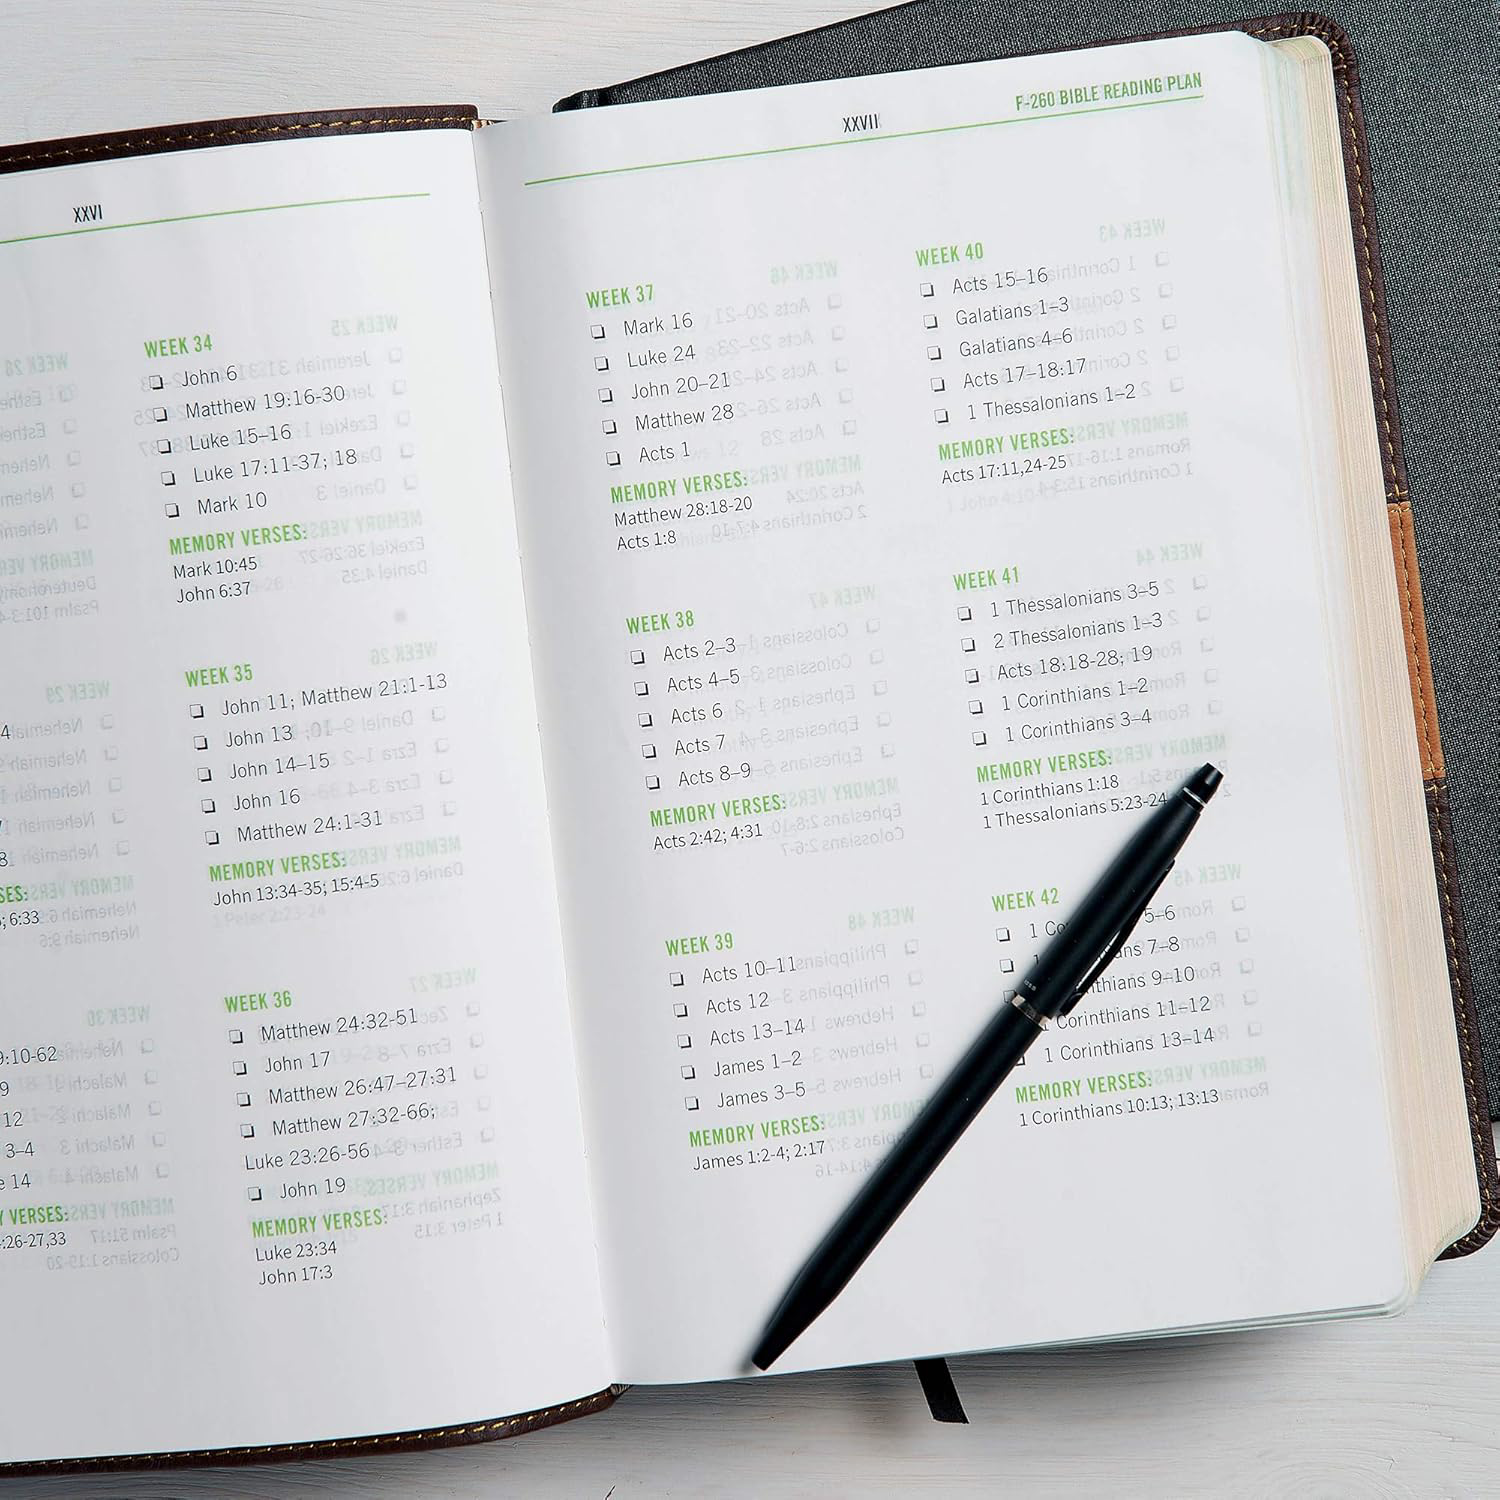 XXVI
9:10-62
9
12
3–4
e 14
Y VERSES:
:26-27,33
; 6:33
WEEK 34
John 6
Matthew 19:16-30
Luke 15–16
Luke 17:11-37; 18
Mark 10
MEMORY VERSES:
Mark 10:45
John 6:37
WEEK 35
John 11; Matthew 21:1-13
John 13
John 14–15
John 16
Matthew 24:1-31
MEMORY VERSES:
John 13:34-35; 15:4-5
WEEK 36
Matthew 24:32-51
John 17
Matthew 26:47–27:31
Matthew 27:32-66;
Luke 23:26-56
John 19
MEMORY VERSES:
Luke 23:34
John 17:3
XXVII
F-260 BIBLE READING PLAN
WEEK 37
Mark 16
Luke 24
John 20–21
Matthew 28
Acts 1
MEMORY VERSES:
Matthew 28:18-20
Acts 1:8
WEEK 38
Acts 2–3
Acts 4–5
Acts 6
Acts 7
Acts 8–9
MEMORY VERSES:
Acts 2:42; 4:31
WEEK 39
Acts 10–11
Acts 12
Acts 13–14
James 1–2
James 3–5
MEMORY VERSES:
James 1:2-4; 2:17
WEEK 40
Acts 15–16
Galatians 1–3
Galatians 4–6
Acts 17–18:17
1 Thessalonians 1–2
MEMORY VERSES:
Acts 17:11,24-25
WEEK 41
1 Thessalonians 3–5
2 Thessalonians 1–3
Acts 18:18-28; 19
1 Corinthians 1–2
1 Corinthians 3–4
MEMORY VERSES:
1 Corinthians 1:18
1 Thessalonians 5:23-24
WEEK 42
1 Co 5–6
ns 7–8
thians 9–10
1 Corinthians 11–12
1 Corinthians 13–14
MEMORY VERSES:
1 Corinthians 10:13; 13:13